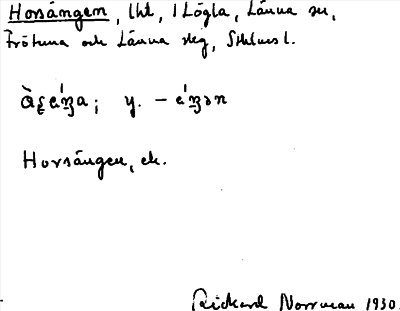 Horsängen, lht, i Lögla, Länna sn,
Frötuna och Länna skg, Sthlms l.
y. –
Horsängen, ek.
Rickard Norrman 1930.